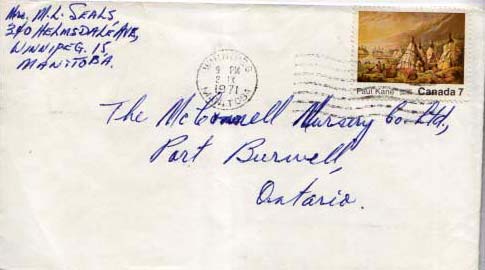 Mrs. M.L. SEALS,
340 HELMSDALE AVE,
WINNIPEG. 15,
MANITOBA.
WINNIPEG
9 PM
2 IX
1971
MANITOBA
Paul Kane
Canada 7
The McConnell Nursery Co. Ltd,
Port Burwell,
Ontario.